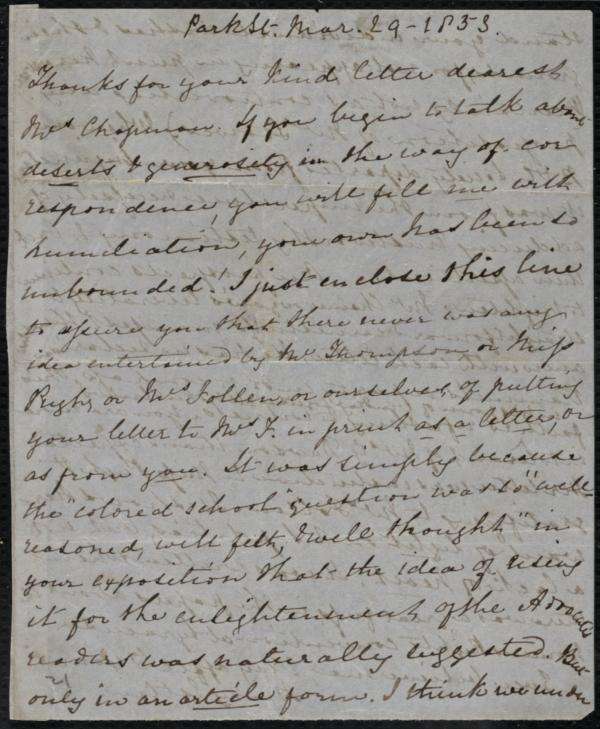 Park St. Mar. 29 - 1853.
Thanks for your kind letter dearest
Mrs Chapman. If you begin to talk about
deserts & generosity in the way of cor
respondence, you will fill me with
humiliation, your own has been so
unbounded! I just enclose this line
to assure you that there never was any
idea entertained by Mr Thompson or Miss
or Mrs Follen, or ourselves, of putting
your letter to Mrs F. in print as a letter, or
as from you. It was simply because
the "colored school" question was so "well
reasoned, well felt, & well thought" in
your exposition that the idea of using
it for the enlightenment of the Advocate's
readers was naturally suggested. But
only in an article form. I think we under